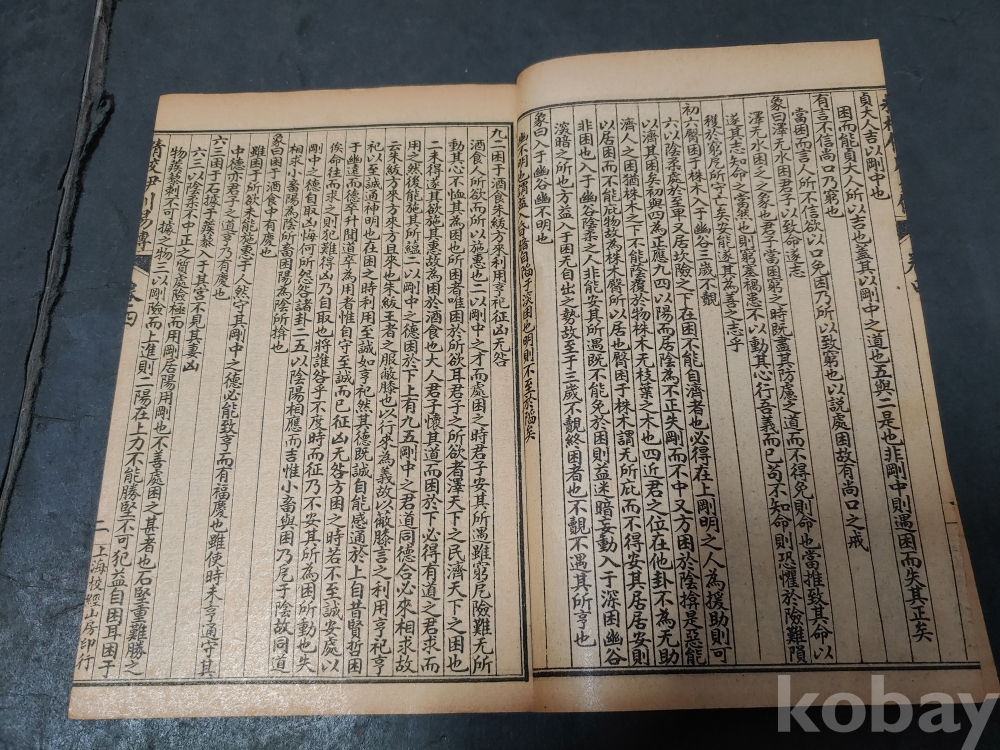 貞大人吉以剛中也
困而能貞大人所以吉也蓋其以剛中之道也五與二是也非剛中則遇困而失其正矣
有言不信尚口乃窮也
當困而言人所不信欲以口免困乃所以致窮也以說處困故有尚口之戒
象曰澤无水困君子以致命遂志
澤无水困乏之象也君子當困窮之時既盡其防慮之道而不得免則命也當推致其命以
遂其志知命之當然也則窮塞禍患不以動其心行吾義而已苟不知命則恐懼於險難隕
穫於窮戹所守亡矣安能遂其為善之志乎
初六臀困于株木入于幽谷三歲不覿
六以陰柔處於至卑又居坎險之下在困不能自濟者也必得在上剛明之人為援助則可
以濟其困矣初與四為正應九四以陽而居陰為不正失剛而不中又方困於陰揜是惡能
濟人之困猶株木之下不能蔭覆於物株木无枝葉之木也四近君之位在他卦不為无助
以居困而不能庇物故為株木臀所以居也臀困于株木謂无所庇而不得安其居居安則
非困也入于幽谷陰柔之人非能安其所遇既不能免於困則益迷暗妄動入于深困幽谷
深暗之所也方益入于困无自出之勢故至于三歲不覿終困者也不覿不遇其所亨也
象曰入于幽谷幽不明也
幽不明也謂益入昏暗自陷于深困也明則不至於陷矣
九二困于酒食朱紱方來利用亨祀征凶无咎
酒食人所欲而所以施惠也二以剛中之才而處困之時君子安其所遇雖窮戹險難无所
動其心不恤其為困也所困者唯困於所欲耳君子之所欲者澤天下之民濟天下之困也
二未得遂其欲施其惠故為困於酒食也大人君子懷其道而困於下必得有道之君求而
用之然後能施其所蘊二以剛中之德困於下上有九五剛中之君道同德合必來相求故
云朱紱方來方來方且來也朱紱王者之服敝膝也以行來為義故以敝膝言之利用亨祀亨
祀以至誠通神明也在困之時利用至誠如亨祀然其德既誠自能感通於上自昔賢哲困
于幽遠而德卒升聞道卒為用者惟自守至誠而已征凶无咎方困之時若不至誠安處以
俟命往而求之則犯難得凶乃自取也將誰咎乎不度時而征乃不安其所為困所動也失
剛中之德自取凶悔何所怨咎諸卦二五以陰陽相應而吉惟小畜與困乃戹于陰故同道
相求小畜陽為陰所畜困陽為陰所揜也
象曰困于酒食中有慶也
雖困于所欲未能施惠于人然守其剛中之德必能致亨而有福慶也雖使時未亨通守其
中德亦君子之道亨乃有慶也
六三困于石據于蒺藜入于其宮不見其妻凶
六三以陰柔不中正之質處險極而用剛居陽用剛也不善處困之甚者也石堅重難勝之
物蒺藜刺不可據之物三以剛險而上進則二陽在上力不能勝堅不可犯益自困耳困于
二 上海校經山房印行
kobay